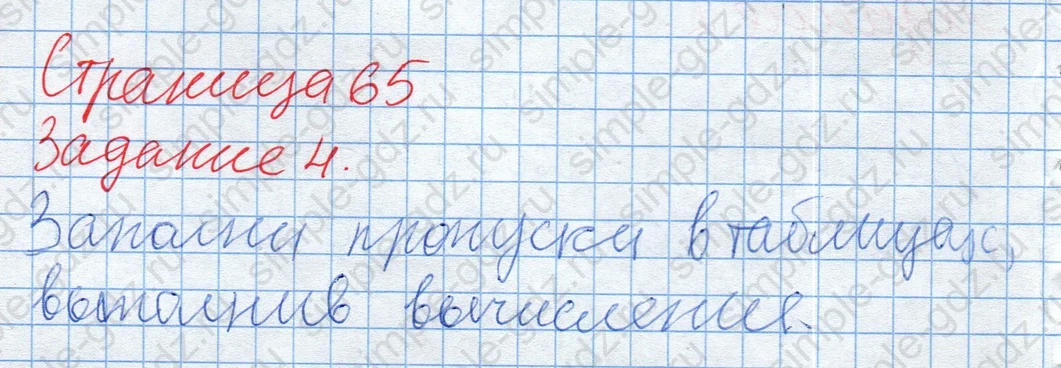 Страница 65
Задание 4.
Заполни пропуски в таблицах,
выполнив вычисление.